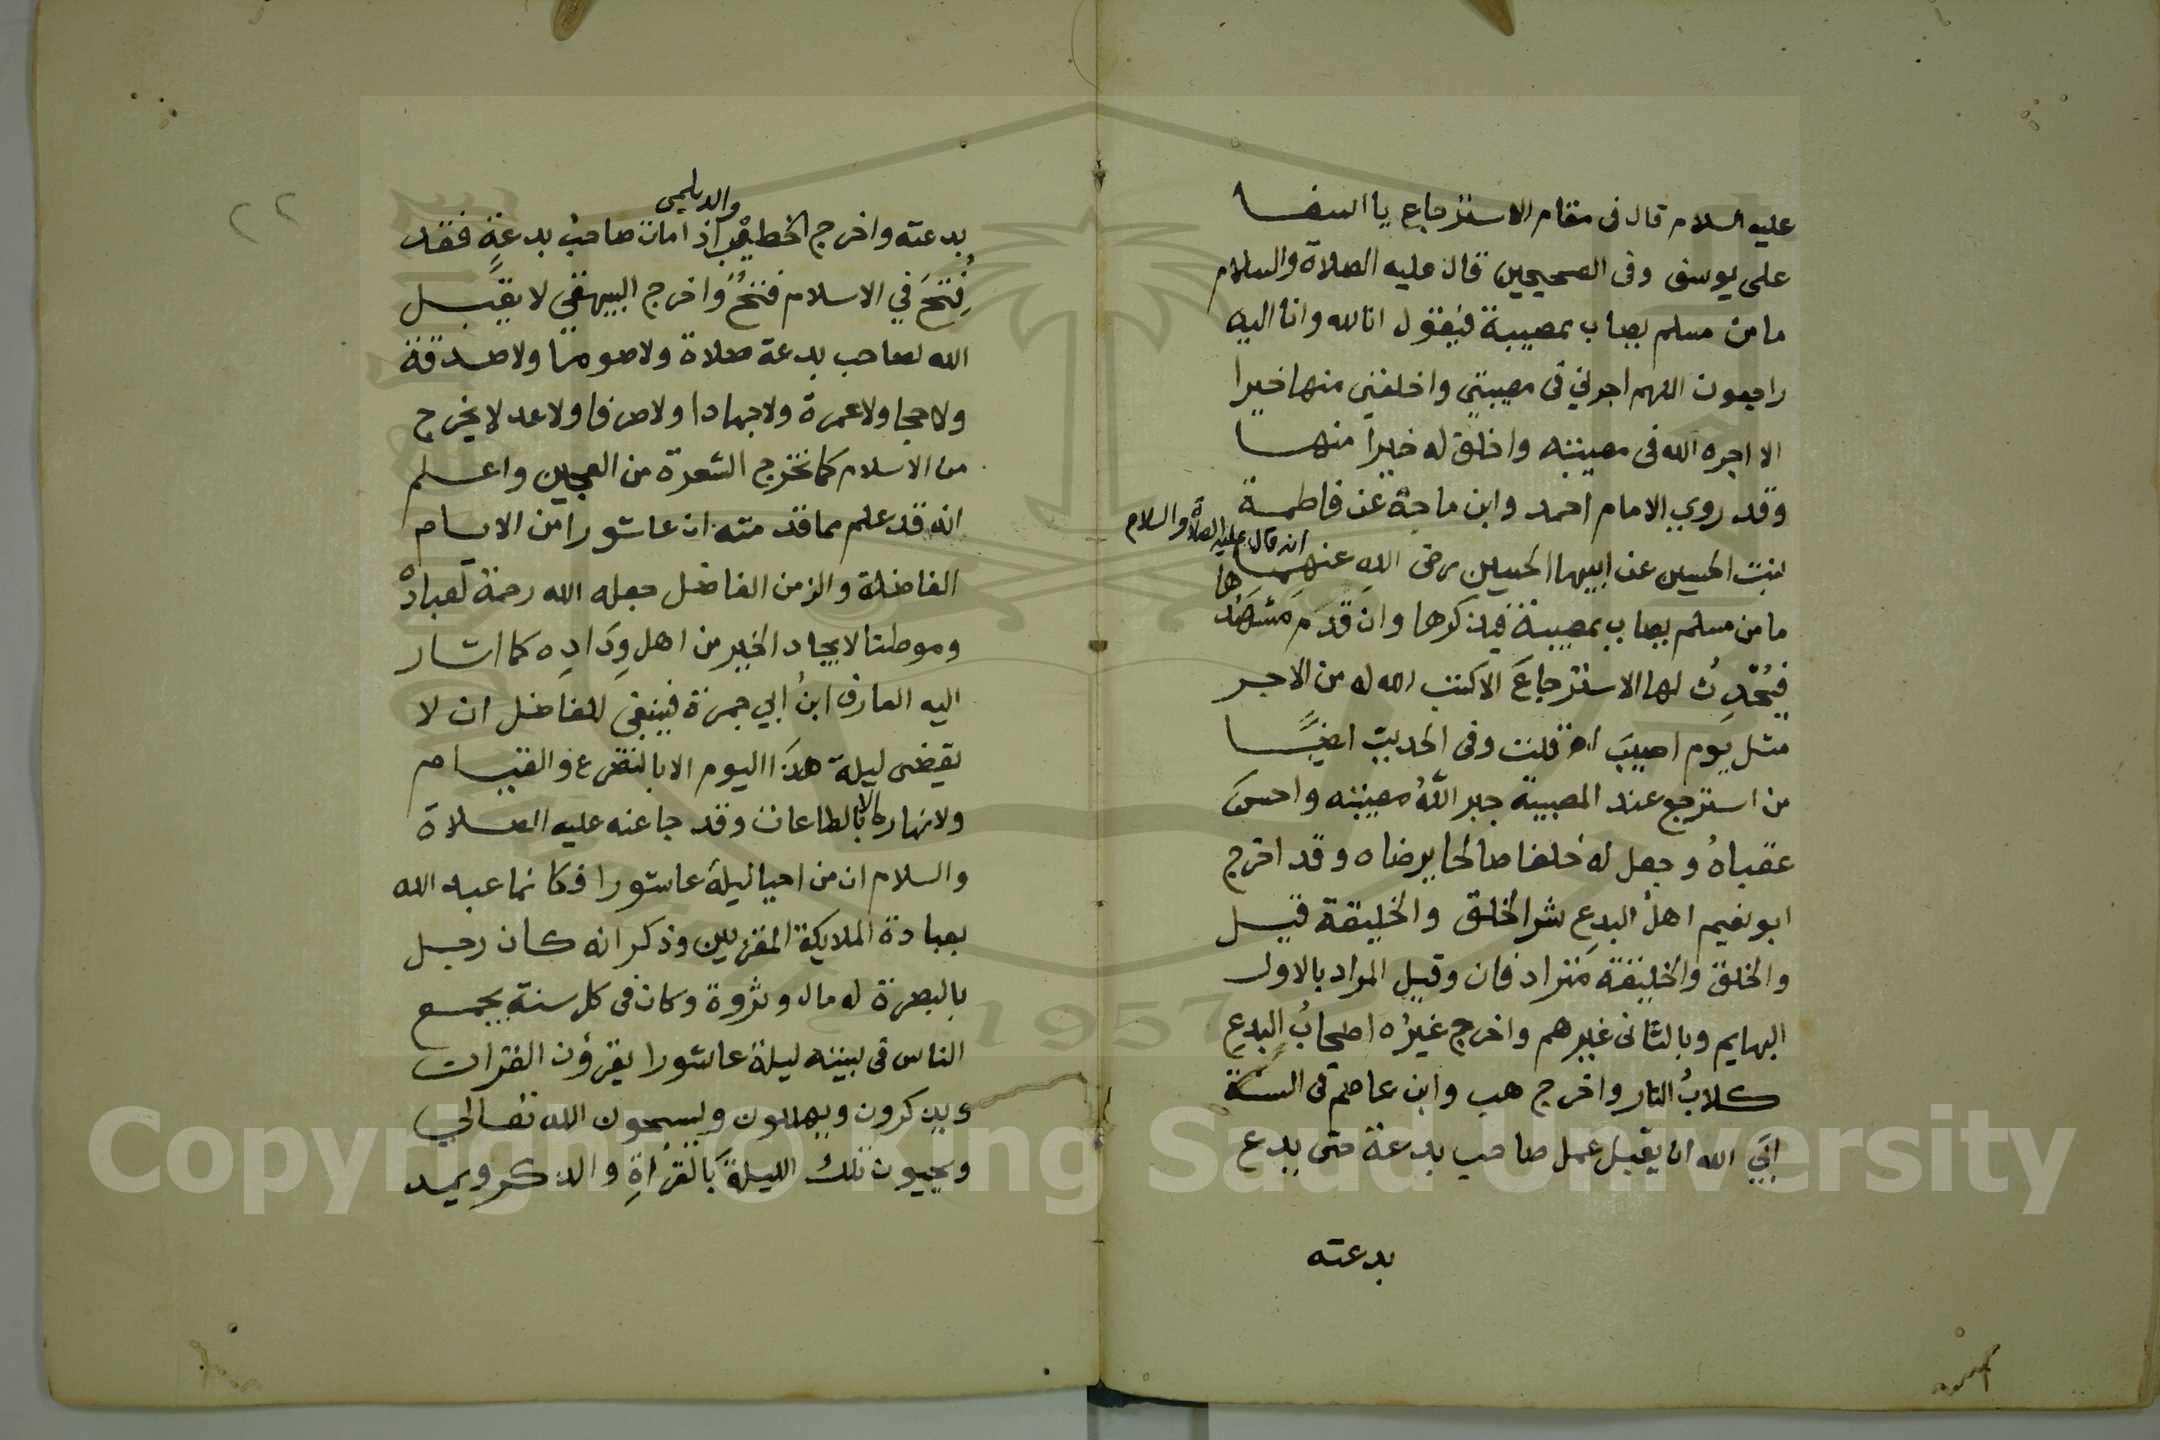 عليه السلام قال فى مقام الاسترجاع يا اسفا
على يوسف وفى الصحيحين قال عليه الصلاة والسلام
ما من مسلم يصاب بمصيبة فيقول انا لله وانا اليه
راجعون اللهم اجرني فى مصيبتي واخلفني منها خيرا
الا اجره الله فى مصيبته واخلف له خيرا منها
وقد روي الامام احمد وابن ماجة عن فاطمة
بنت الحسين عن ابيها الحسين رضى الله عنهما انه قال عليه الصلاة والسلام
ما من مسلم يصاب بمصيبة فيذكرها وان قدم عهدها
فيُحْدِث لها الاسترجاعَ الا كتب الله له من الاجر
مثل يوم اصيبَ اﻫ قلت وفى الحديث ايضًا
من استرجع عند المصيبة جبر اللّهُ مصيبته واحسن
عقباهُ وجعل له خلفا صالحا يرضاه وقد اخرج
ابو نعيم اهلُ البدعِ شر الخلق والخليقة قيل
والخلق والخليقة مترادفان وقيل المراد بالاول
البهايم وبالثانى غيرهم واخرج غيرُه اصحابُ البدعِ
كلابُ النار واخرج هب وابن عاصم فى السنة
ابَي الله ان يقبل عمل صاحب بدعة حتى يدع
بدعته
٢٢
والديلمى
بدعته واخرج الخطيب اذا مات صاحبُ بدعةٍ فقد
فُتِحَ في الاسلام فتحٌ واخرج البيهقي لا يقبل
الله لصاحب بدعة صلاة ولا صوما ولا صدقة
ولا حجا ولا عمرة ولا جهادا ولا صرفا ولا عدلا يخرج
من الاسلام كما تخرج الشعرة من العجين واعلم
انه قد علم مما قدمته ان عاشورا من الايام
الفاضلة والزمن الفاضل جعله الله رحمة لعباده
وموطنا لايجاد الخير من اهل وِدَادِه كما اشار
اليه العارف ابنُ ابي جمرة فينبغي للفاضل ان لا
يقضى ليلة هذا اليوم الا بالتضرع والقيام
ولا نهاره الا بالطاعات وقد جا عنه عليه الصلاة
والسلام ان من احيا ليلة عاشورا فكانما عبد الله
بعبادة الملايكة المقربين وذكر انه كان رجل
بالبصرة له مال وثروة وكان فى كل سنة يجمع
الناس فى بيته ليلة عاشورا يقرؤن القران
ويذكرون ويهللون ويسبحون الله تعالي
ويحيون تلك الليلةَ بالقراةِ والذكر ويمد
Copyright © King Saud University
1957